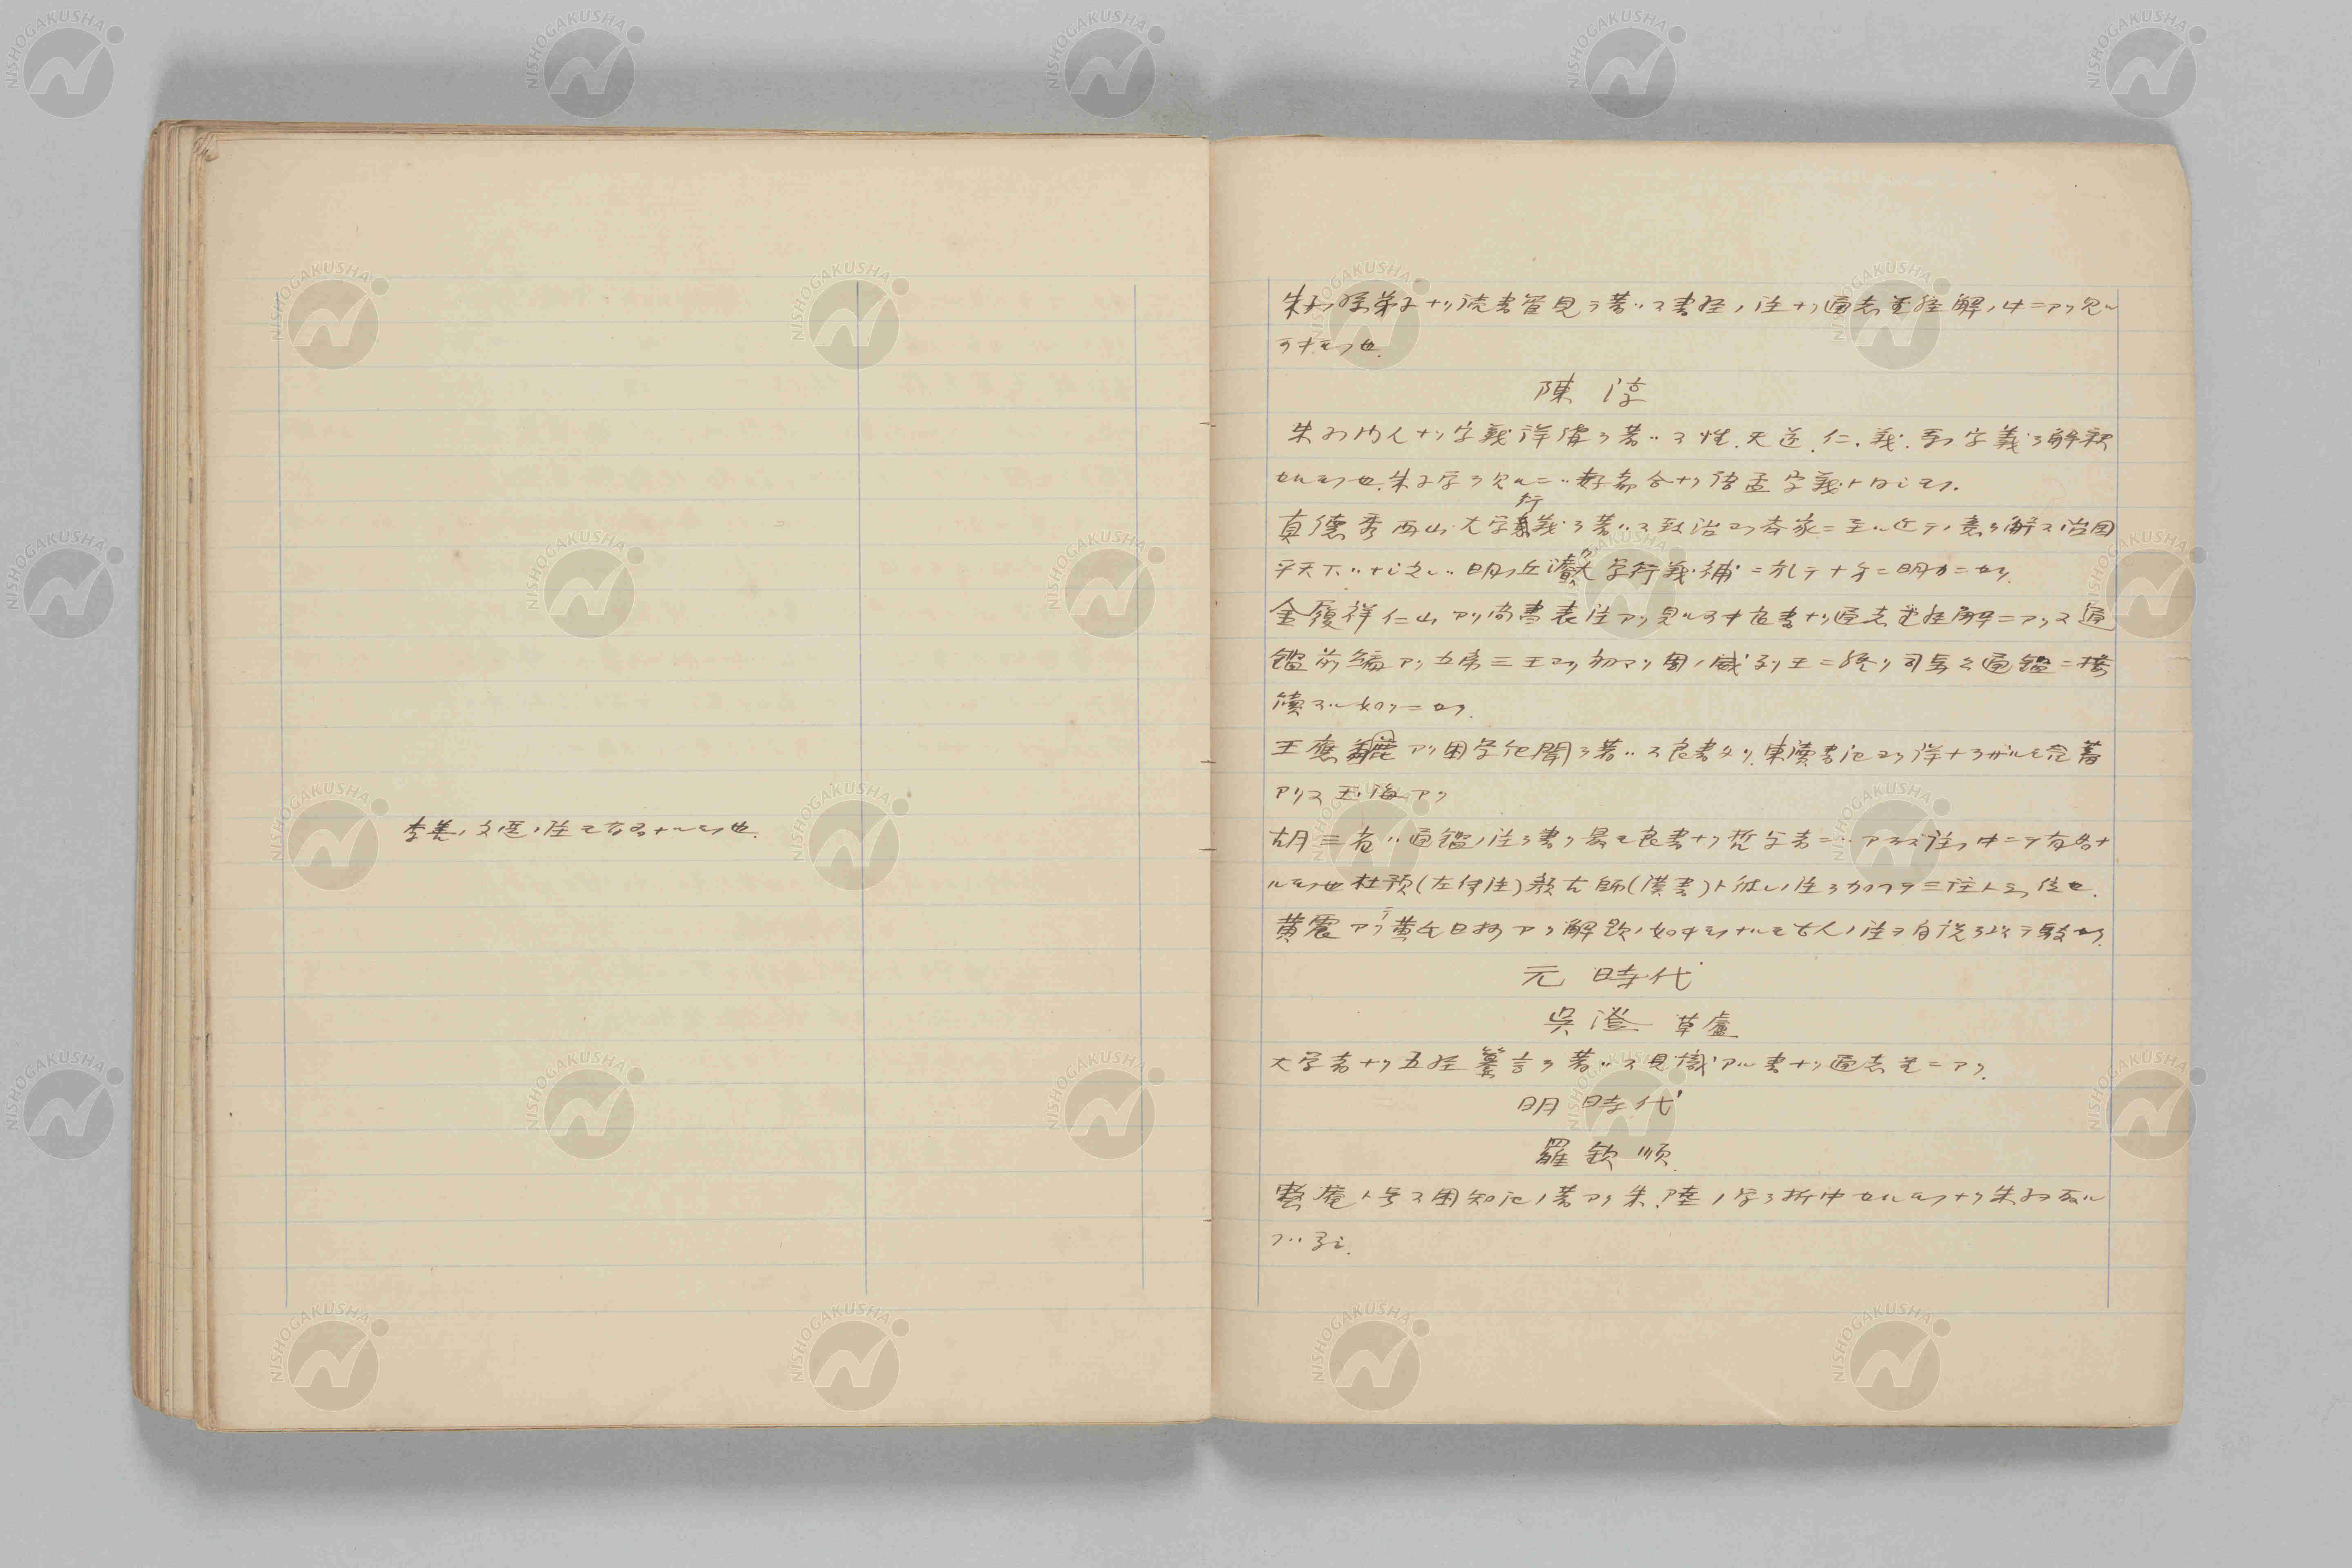 李善ノ文選ノ注モ有名ナルモノ也.
朱子ノ孫弟子ナリ読書管見ヲ著ハス書経ノ注ナリ通志堂経解ノ中ニアリ見ル
可キモノ也.
陳 淳
朱子ノ門人ナリ字義詳備ヲ著ハス性.天道.仁.義.等ノ字義ヲ解釈
セルモノ也.朱子学ヲ見ルニハ好都合ナリ語孟字義ト同シモノ.
真徳秀西山大学衍義ヲ著ハス政治ヨリ斉家ニ至ル迄テノ意ヲ解ス治国
平天下ハナシ之レハ明ノ丘濬カ大学衍義補ニ於テ十分ニ明カニセリ.
金履祥仁山アリ尚書表注アリ見ル可キ良書ナリ通志堂経解ニアリ又通
鑑前編アリ五帝三王ヨリ初マリ周ノ威烈王ニ終リ司馬公通鑑ニ接
続スル如クニセリ.
王應麟アリ困学紀聞ヲ著ハス良書ナリ.東読書記ヨリ詳ナラザルモ含蓄
アリ又玉海アリ
胡三省ハ通鑑ノ注ヲ書ク最モ良書ナリ哲学者ニハアラズ注ノ中ニテ有名ナ
ルモノ也杜預(左伝注)顔古師(漢書)ト彼レノ注ヲ加ヘテ三注ト云フ位也.
黄震アリテ黄氏日抄アリ解題ノ如キモノナルモ古人ノ注ヲ自説ヲ以テ駁セリ.
元 時代
呉澄 草廬
大学者ナリ五経纂言ヲ著ハス見識アル書ナリ通志堂ニアリ.
明 時代
羅欽順
整菴ト号ス困知記ノ著アリ朱.陸ノ学ヲ折中セルモノナリ朱子ヲ取ル